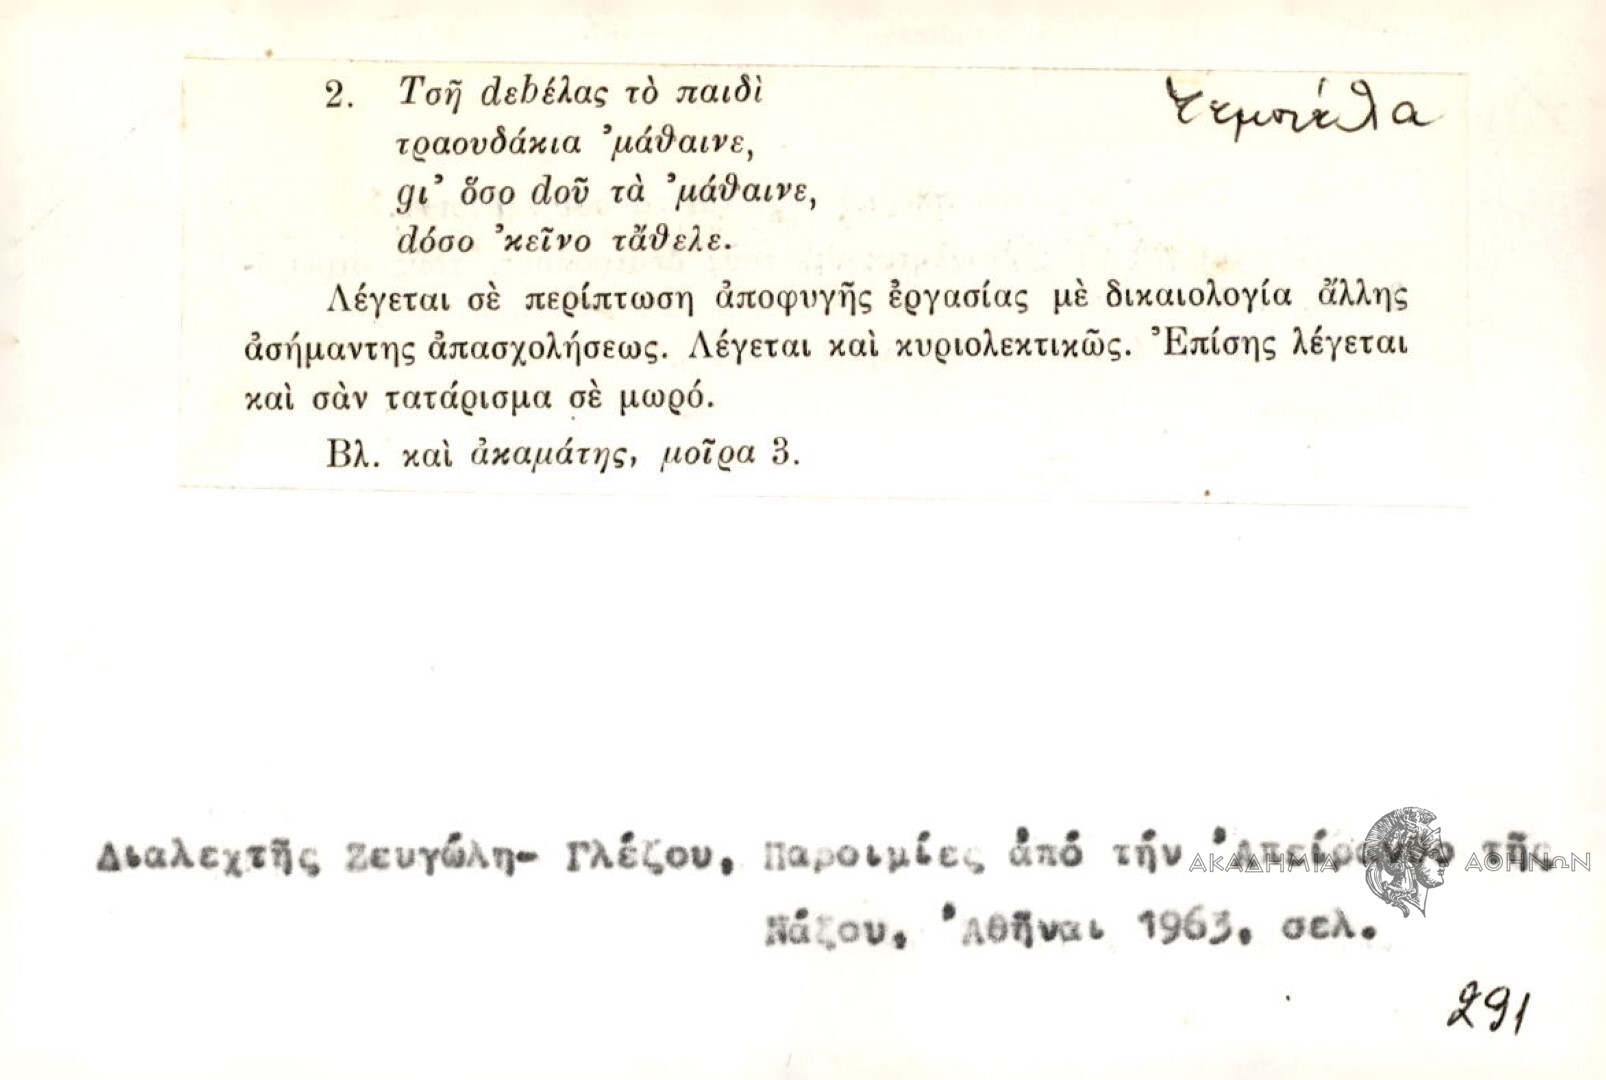 2. Τσῆ dεbέλας τὸ παιδὶ
τεμπέλα
τραουδάκια ᾿μάθαινε,
gι᾿ ὅσο dοῦ τὰ ᾿μάθαινε,
dόσο ᾿κεῖνο τἄθελε.
Λέγεται σὲ περίπτωση ἀποφυγῆς ἐργασίας μὲ δικαιολογία ἄλλης
ἀσήμαντης ἀπασχολήσεως. Λέγεται καὶ κυριολεκτικῶς. Ἐπίσης λέγεται
καὶ σὰν τατάρισμα σὲ μωρό.
Βλ. καὶ ἀκαμάτης, μοῖρα 3.
Διαλεχτῆς Ζευγώλη- Γλέζου, Παροιμίες ἀπό τήν Ἀπείρανθο τῆς
ΑΚΑΔΗΜΙΑ ΑΘΗΝΩΝ
Νάξου, Ἀθῆναι 1963, σελ.
291